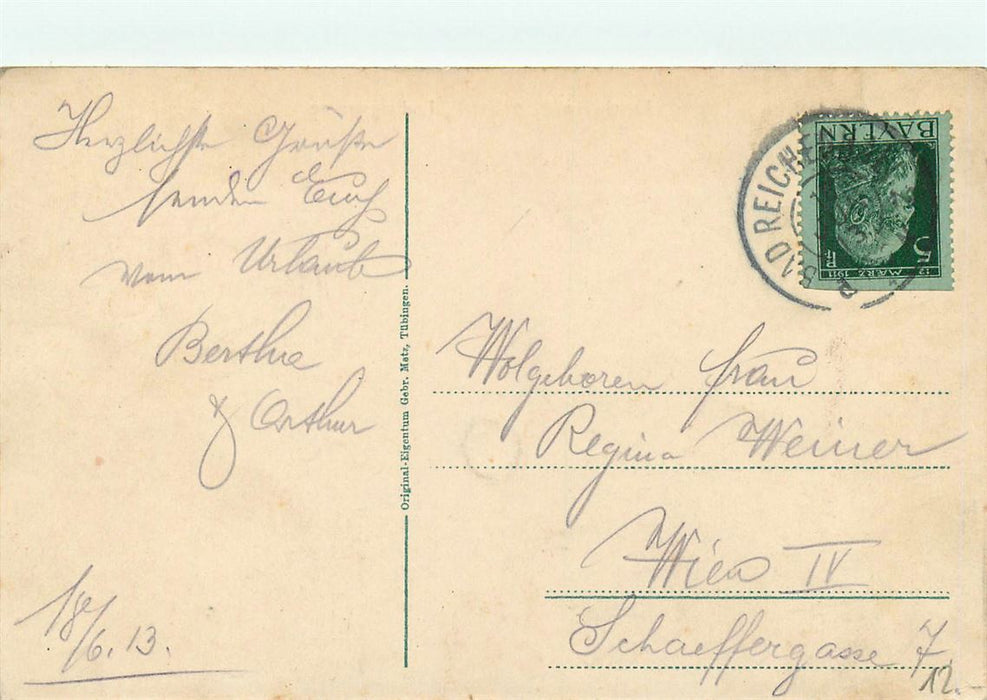 Herzlichste Grüße
senden Euch
vom Urlaub
Berthe
& Arthur
18/6.13.
Original-Eigentum Gebr. Metz, Tübingen.
BAD REICHEN
BAYERN
5 Pf
12. MÄRZ 1911
Wolgeboren Frau
Regina Weiner
Wien IV
Schaeffergasse 7
12.-